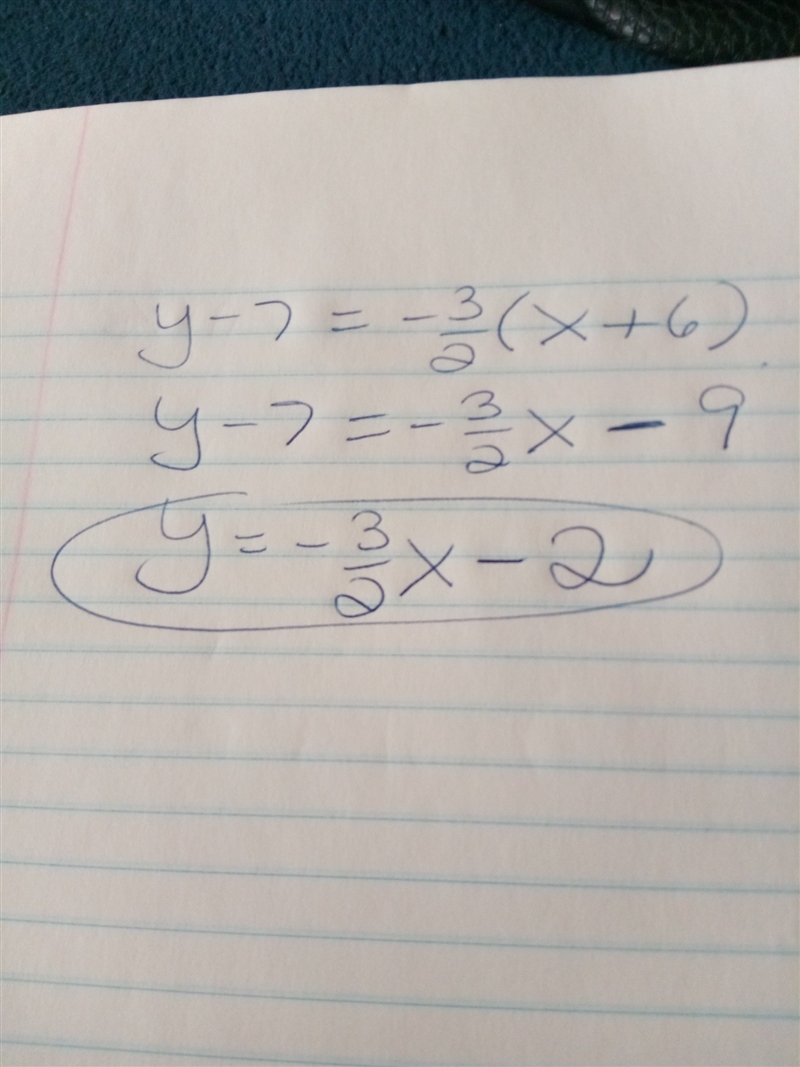 y-7 = -3/2(x+6)
y-7 = -3/2x - 9
y = -3/2x - 2